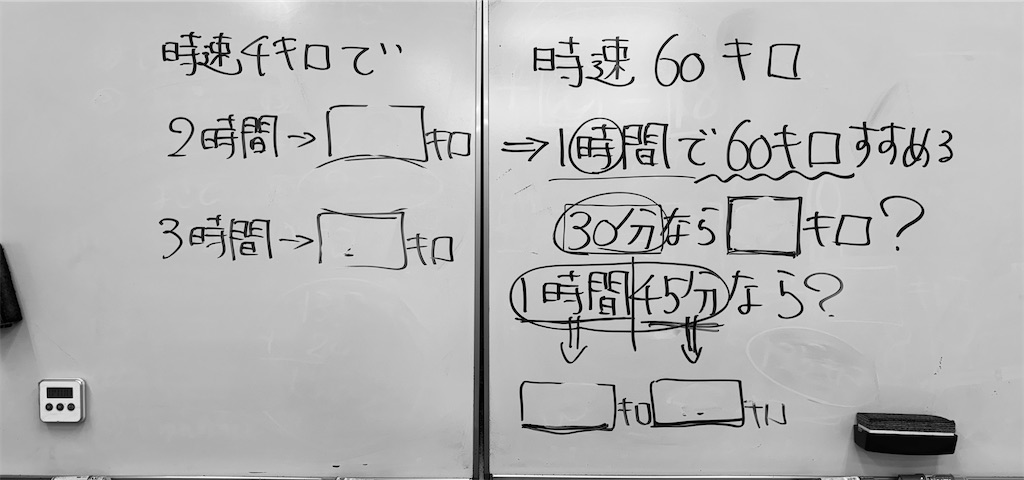 時速4キロで
2時間→□キロ
3時間→□キロ
時速60キロ
⇒1時間で60キロすすめる
30分なら□キロ?
1時間45分なら?
□キロ□キロ